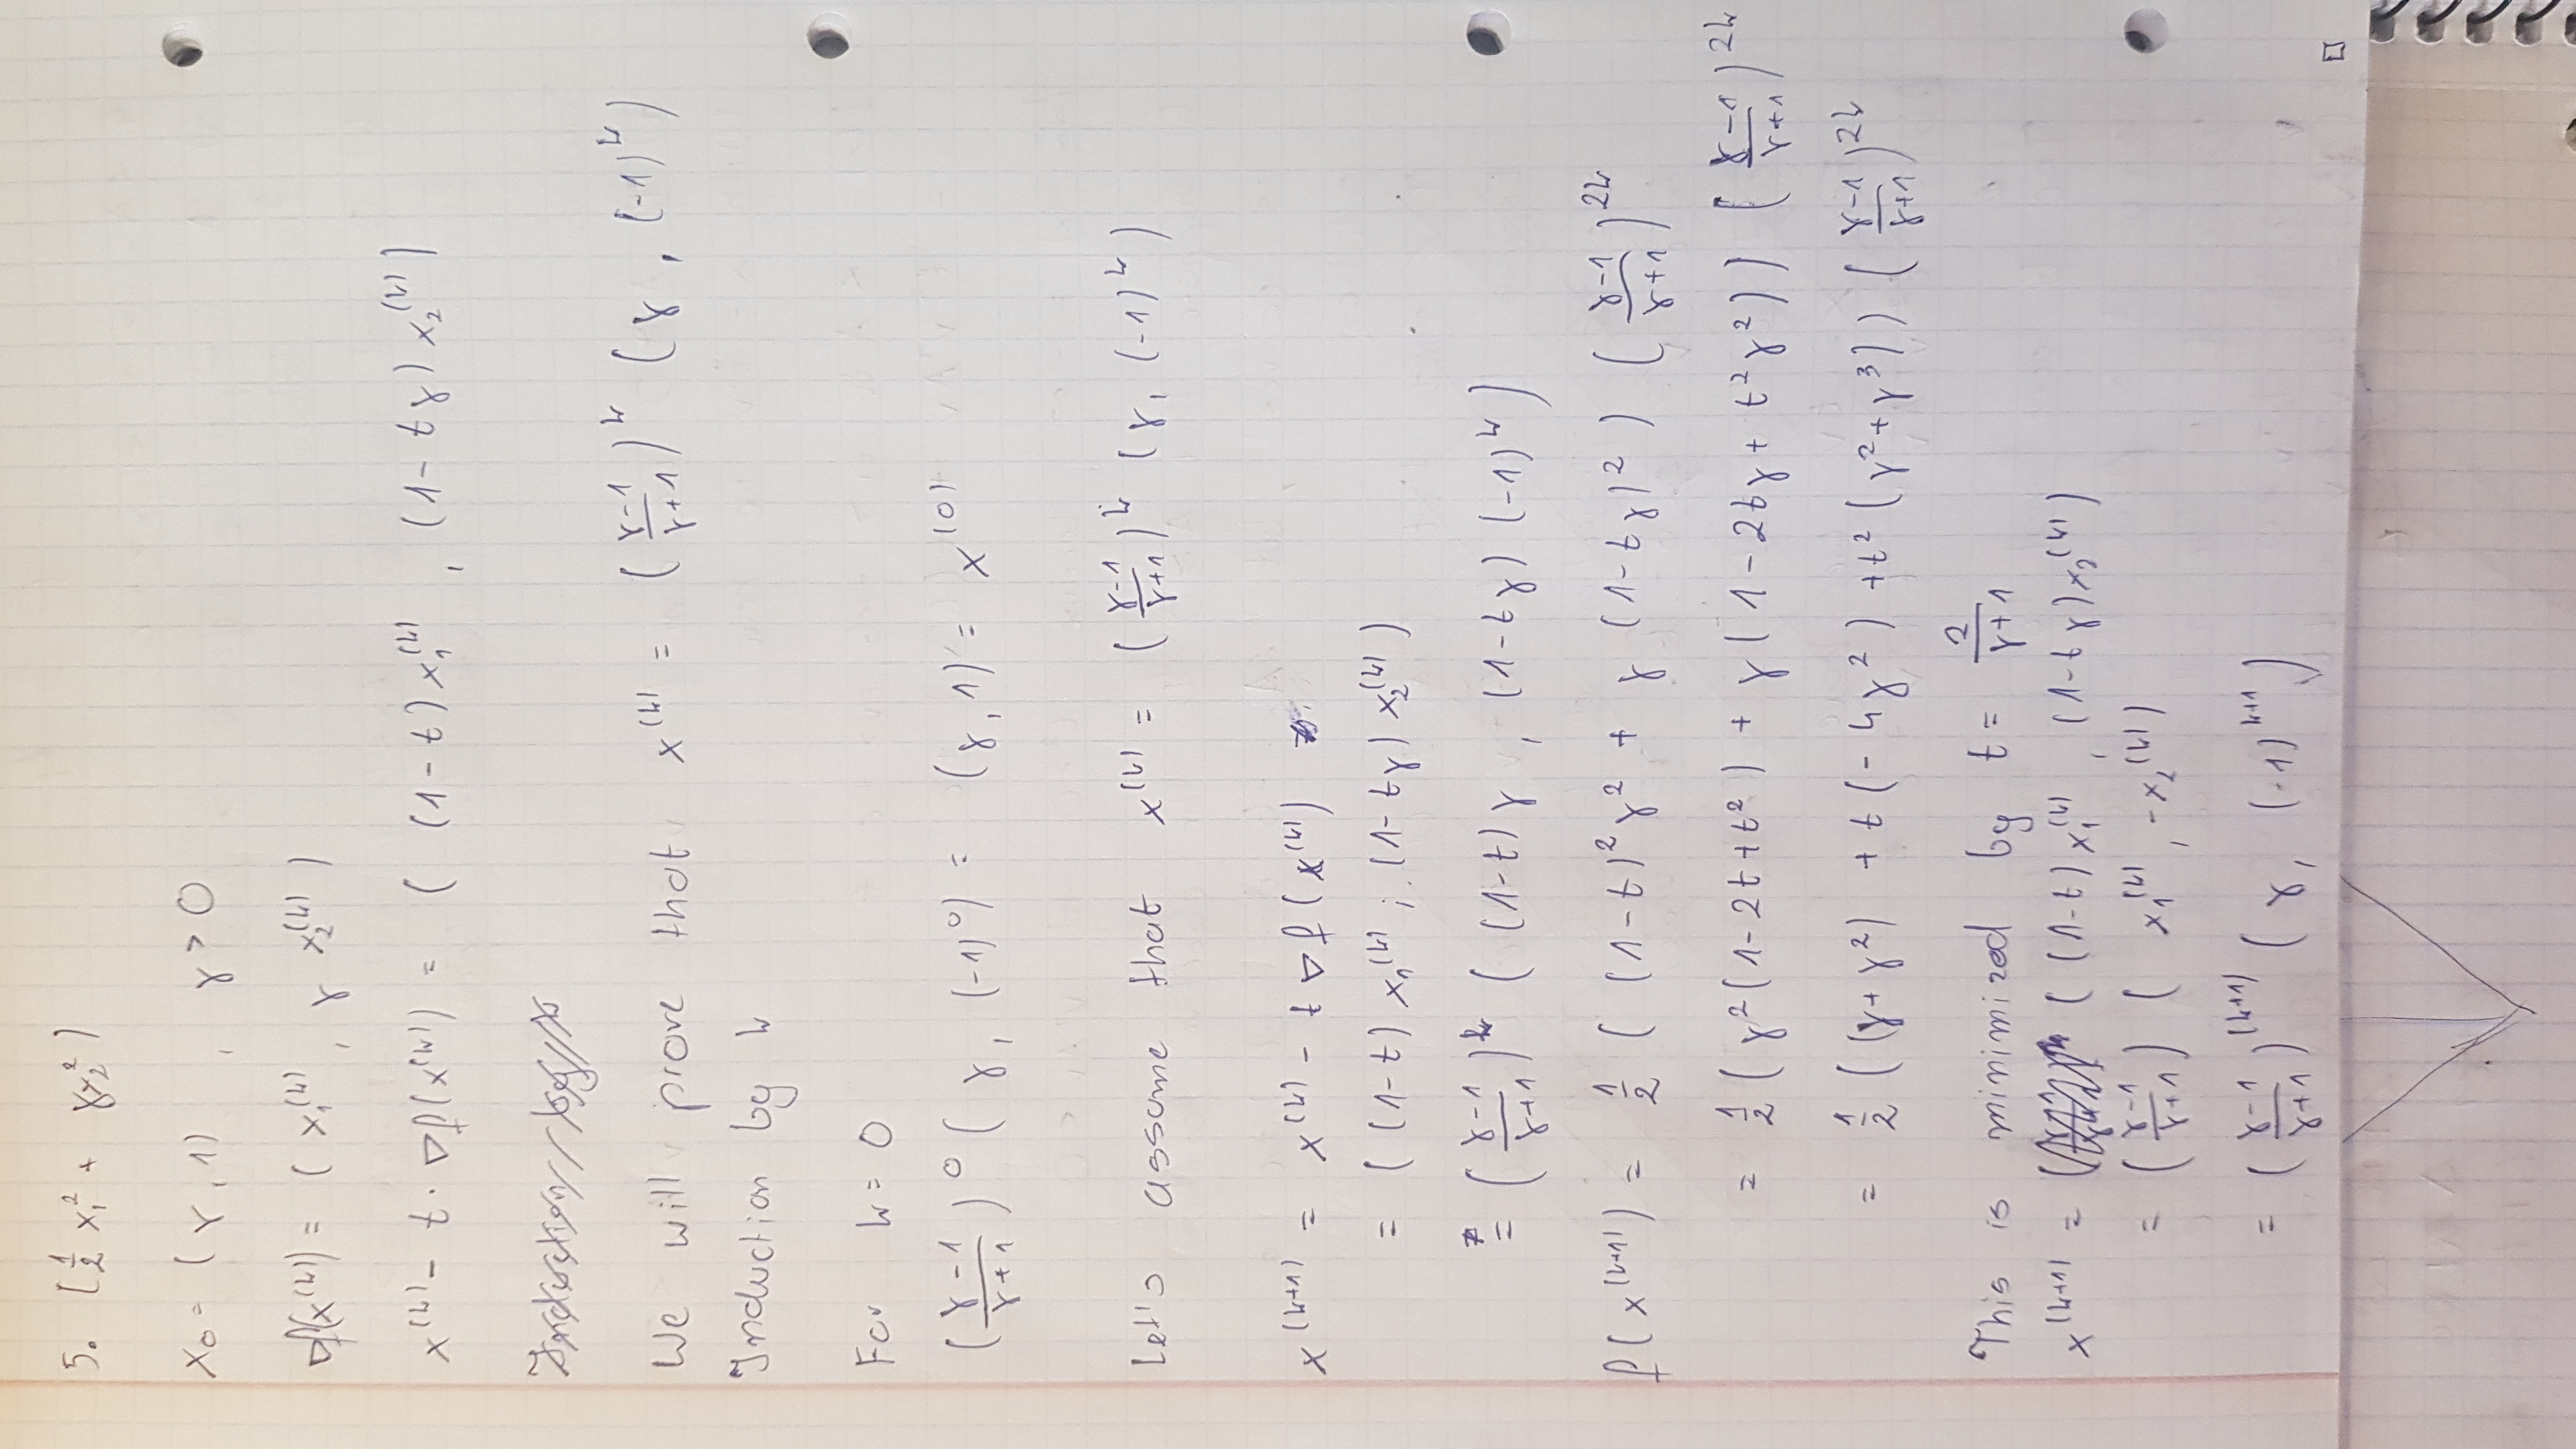 5. (1/2 x₁² + γx₂²)
x₀ = (γ, 1) , γ > 0
∇f(x^(k)) = ( x₁^(k) , γ x₂^(k) )
x^(k) - t · ∇f(x^(k)) = ( (1-t) x₁^(k) , (1-tγ) x₂^(k) )
Induction by k
We will prove that x^(k) = ((γ-1)/(γ+1))^k (γ, (-1)^k)
Induction by k
For k = 0
((γ-1)/(γ+1))^0 (γ, (-1)^0) = (γ, 1) = x^(0)
Let's assume that x^(k) = ((γ-1)/(γ+1))^k (γ, (-1)^k)
x^(k+1) = x^(k) - t ∇f(x^(k))
= ( (1-t) x₁^(k) ; (1-tγ) x₂^(k) )
= ((γ-1)/(γ+1))^k ( (1-t)γ , (1-tγ) (-1)^k )
f(x^(k+1)) = 1/2 ( (1-t)²γ² + γ (1-tγ)² ) ((γ-1)/(γ+1))^2k
= 1/2 (γ²(1-2t+t²) + γ(1-2tγ + t²γ²)) ((γ-1)/(γ+1))^2k
= 1/2 ((γ+γ²) + t(-4γ²) + t²(γ²+γ³)) ((γ-1)/(γ+1))^2k
This is minimized by t = 2/(γ+1)
x^(k+1) = ( (1-t) x₁^(k) , (1-tγ) x₂^(k) )
= ((γ-1)/(γ+1)) ( x₁^(k) , -x₂^(k) )
= ((γ-1)/(γ+1))^(k+1) (γ, (-1)^k+1)
□